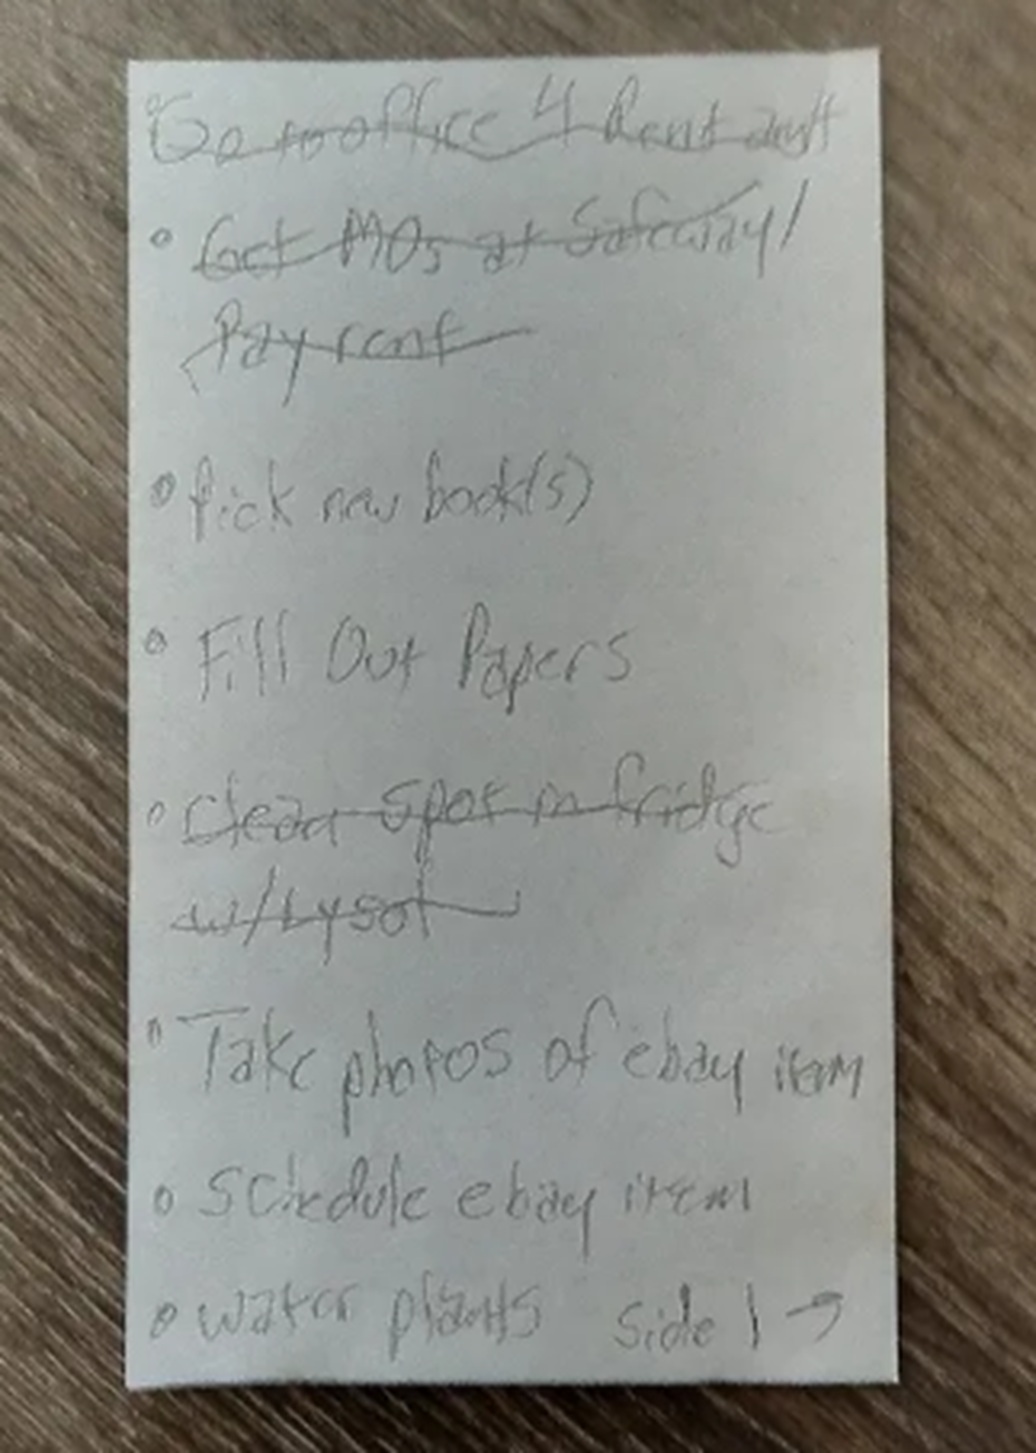 Go to office 4 Rent amt
• Get MOs at Safeway/
Pay rent
• Pick new book(s)
• Fill Out Papers
• Clean spot in fridge
w/Lysol
• Take photos of ebay item
• Schedule ebay item
• water plants side 1 →